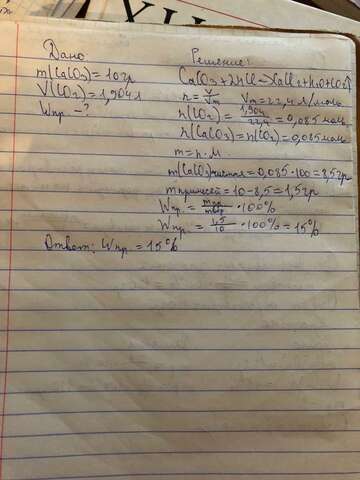 Дано
m(CaCO3)=10гр
V(CO2)=1,904л
Wпр. -?
Решение:
CaCO3+2HCl=CaCl2+H2O+CO2↑
n=V/Vm Vm=22,4л/моль
n(CO2)=1,904/22,4=0,085моль
n(CaCO3)=n(CO2)=0,085моль
m=n·M
m(CaCO3)чистая=0,085·100=8,5гр
mпримесей=10-8,5=1,5гр
Wпр.=mпр/mтвер·100%
Wпр.=1,5/10·100%=15%
Ответ: Wпр.=15%